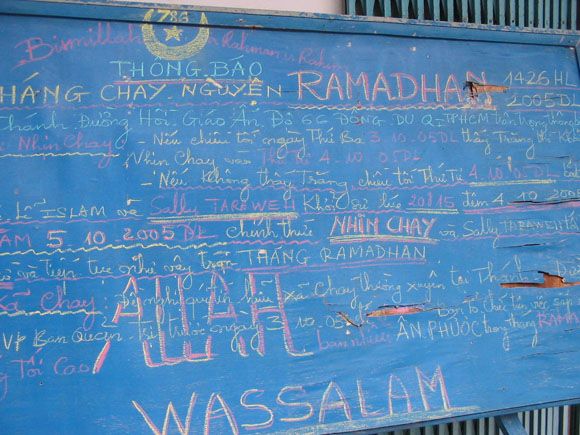 786
Bismillah ir Rahman ir Rahim
THÔNG BÁO
HÁNG CHAY NGUYỆN RAMADHAN 1426 HL
2005 DL
Thánh Đường Hồi Giáo Ấn Độ 66 ĐÔNG DU Q1 TPHCM
Nhịn Chay - Nếu chiều tối ngày Thứ Ba 3.10.05 DL thấy Trăng
Nhịn Chay vào Thứ Tư 4.10.05 DL
- Nếu không thấy Trăng chiều tối Thứ Tư 4.10.05 DL
Lễ ISLAM và Sally TARAWEH Khởi sự lúc 20815 đêm 4.10.200
ĂM 5.10.2005 DL chính thức NHỊN CHAY và Sally TARAWEH
và tiếp tục như vậy trọn THÁNG RAMADHAN
Xả Chay: Đề nghị quý tín hữu xả Chay thường xuyên tại Thánh
BAN Quản trị trước ngày 3.10.05
ban nhiều ÂN PHƯỚC trong tháng RAMA
Tối Cao
ALLAH
WASSALAM